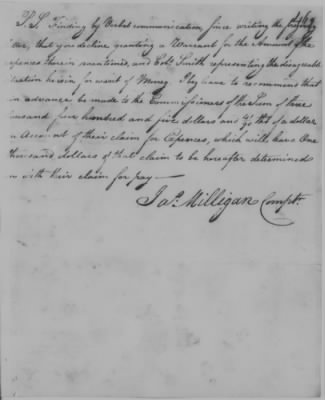 P. S. Finding by Verbal communication, since writing the
that you decline granting a Warrant for the Amount of
penses therein mentioned, and Colo. Smith representing the disagreeable
uation herein for want of Money. I beg leave to recommend that
an advance be made to the Commissioners of the Sum of three
ousand four hundred and five dollars and of a dollar
on Account of their claim for Expences, which will leave One
thousand dollars of that claim to be hereafter determined
on with their claim for pay—
Jas. Milligan Compt.